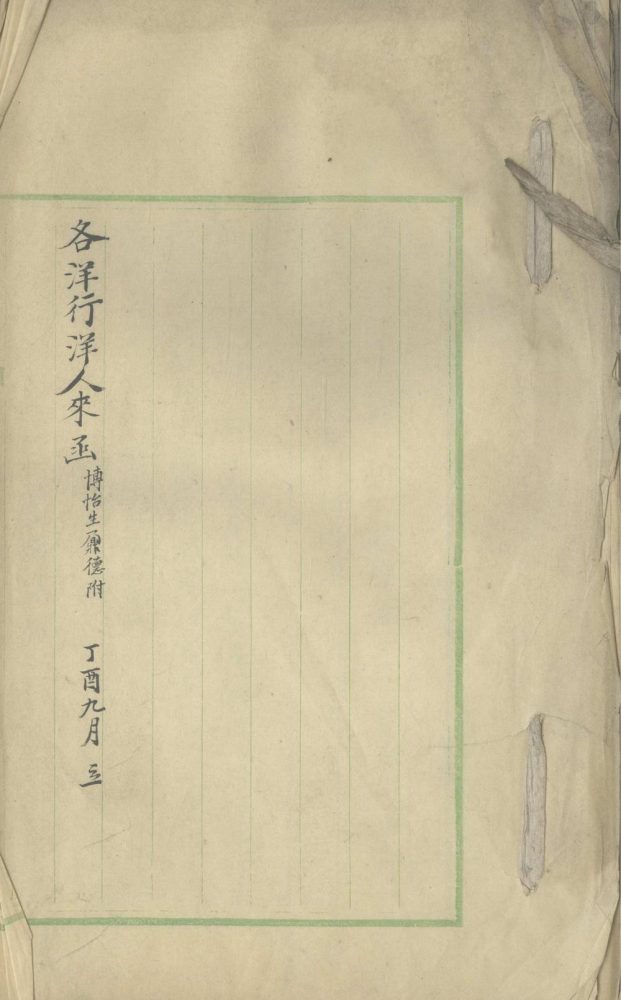 各洋行洋人來函 博怡生 德附 丁酉九月 立